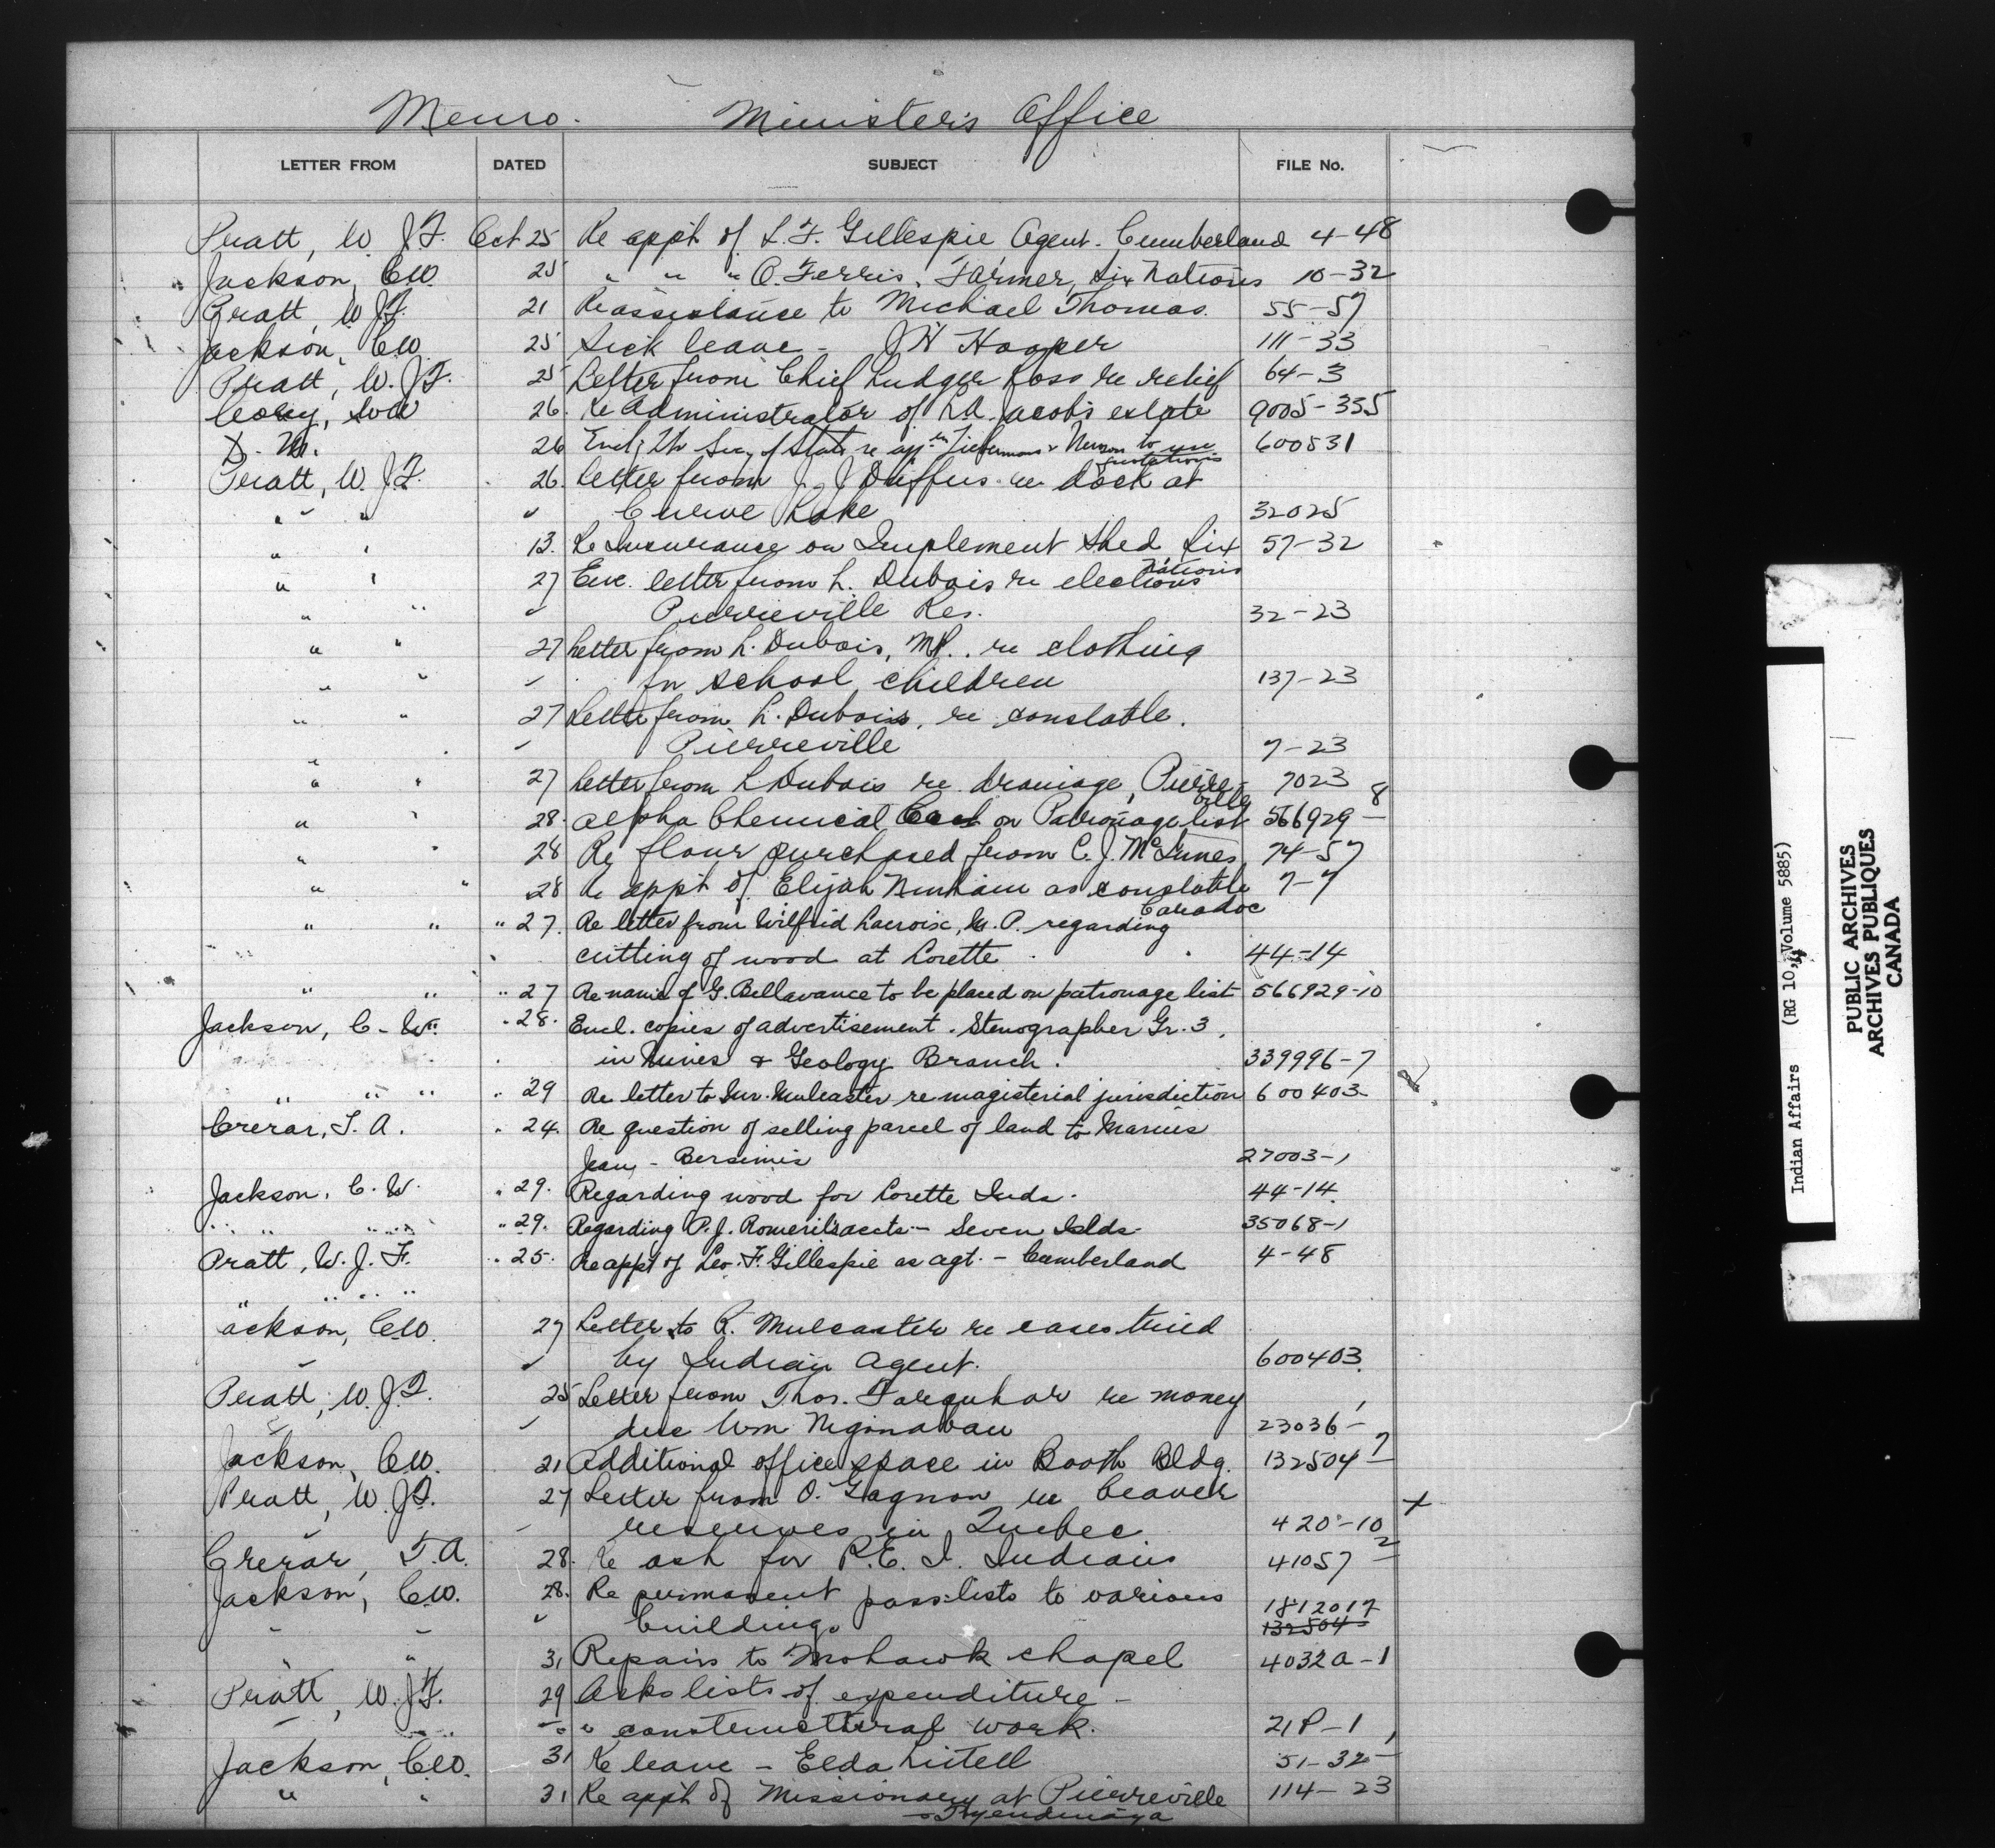 Memo. Minister's Office
LETTER FROM DATED SUBJECT FILE No.
Pratt, W. J. F. Oct 25 Re appt of L. F. Gillespie Agent. Cumberland 4-48
Jackson, C.W. 25 " " " O. Ferris, Farmer, Six Nations 10-32
Pratt, W. J. F. 21 Re assistance to Michael Thomas. 55-57
Jackson, C.W. 25 Sick leave - J H Hooper 111-33
Pratt, W. J. F. 25 Letter from Chief Ludger Ross re relief 64-3
Corey, 26. Re Administrator of Jacobs estate 9005-335
D. M. 26 Encl. Secy of State re to use 600531
quotations
Pratt, W. J. F. 26. Letter from J. J Duffus re dock at
" " " Curve Lake 32025
" " 13. Re Insurance on Implement Shed Six 57-32
Nations
" " 27 Enc. letter from L. Dubois re elections
" " " Pierreville Res. 32-23
" " 27 Letter from L. Dubois, MP. re clothing
" " " for school children 137-23
" " 27 Letter from L. Dubois, re constable.
" Pierreville 7-23
" " 27 Letter from L Dubois re drainage, Pierre- 7023
ville 8
" " 28. Alpha Chemical on Patronage list 566929 -
" " 28 Re flour purchased from C. J. McInnes 74-57
" " 28 Re appt of Elijah Ninham as constable 7-7
Caradoc
" " " 27. Re letter from Wilfrid Lacroix, M. P. regarding
cutting of wood at Lorette 44-14
" " " 27 Re name of G. Bellavance to be placed on patronage list 566929-10
Jackson, C. W. " 28. Encl. copies of advertisement. Stenographer Gr. 3,
in Mines & Geology Branch. 339996-7
" " " " 29 Re letter to Mr. Mulcaster re magisterial jurisdiction 600403
Crerar, T. A. " 24. Re question of selling parcel of land to Marius
Jean - Bersimis 27003-1
Jackson, C. W. " 29. Regarding wood for Lorette Inds. 44-14
" " " " " 29. Regarding P. J. Romeril's accts - Seven Islds 35068-1
Pratt, W. J. F. " 25. Re appt of Leo. F. Gillespie as agt. - Cumberland 4-48
" " " "
Jackson, C.W. 27 Letter to R. Mulcaster re cases tried
" " by Indian Agent. 600403
Pratt, W. J. F. 25 Letter from Thos. Farquhar re money
" due Wm 23036-1
Jackson, C.W. 21 Additional office space in Booth Bldg. 132504-7
Pratt, W. J. F. 27 Letter from O. Gagnon re beaver +
" reserves in Quebec 420-10
Crerar, T. A. 28. Re ash for P.E.I. Indians 41057-2
Jackson, C.W. 28. Re permanent pass-lists to various 1812017
" " " buildings 132504
" " 31 Repairs to Mohawk chapel 4032A-1
Pratt, W. J. F. 29 Asks lists of expenditure -
" " constructural work. 21P-1
Jackson, C.W. 31 Re leave - Elda Littell 51-32-1
" " 31 Re appt of Missionary at Pierreville 114-23
Tyendinaga
Indian Affairs (RG 10, Volume 5885)
PUBLIC ARCHIVES
ARCHIVES PUBLIQUES
CANADA